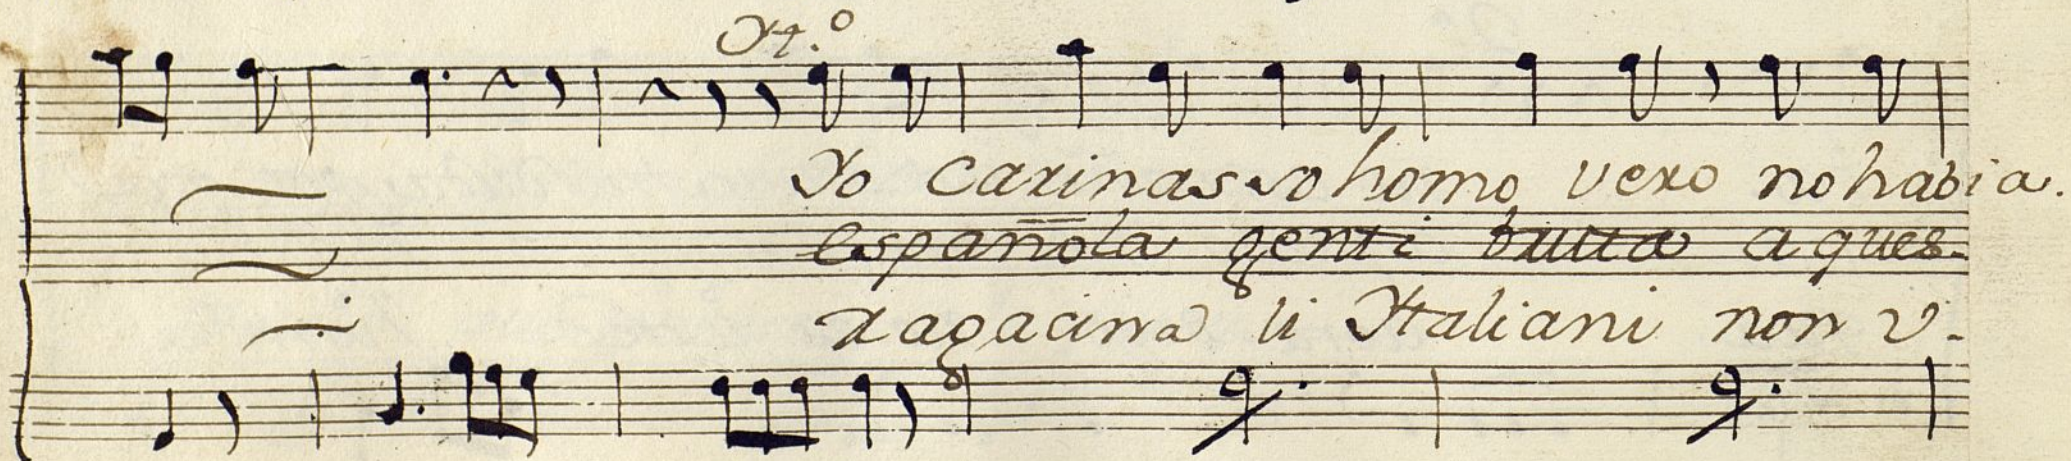 Yt.º
Yo carinas so homo vero no habia.
española genti brutta a ques-
ragacina li Ytaliani non v-